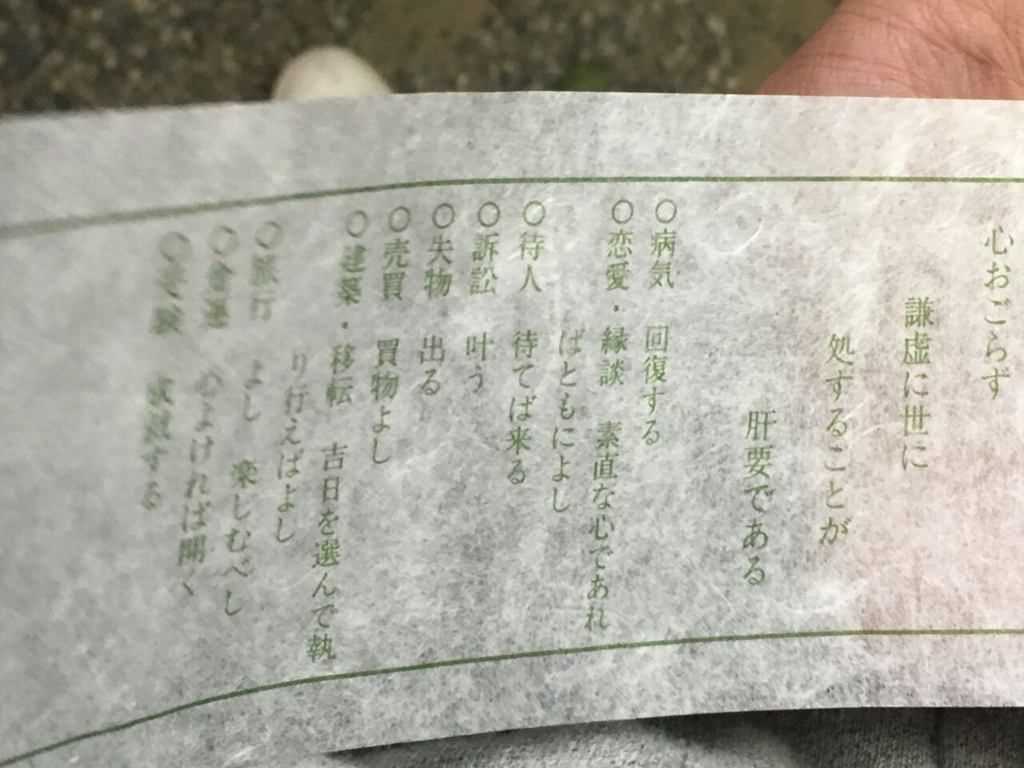 心おごらず
謙虚に世に
処することが
肝要である
○病気 回復する
○恋愛・縁談 素直な心であれ
ばともによし
○待人 待てば来る
○訴訟 叶う
○失物 出る
○売買 買物よし
○建築・移転 吉日を選んで執
り行えばよし
○旅行 よし 楽しむべし
○金運 心よければ開く
○受験 成就する